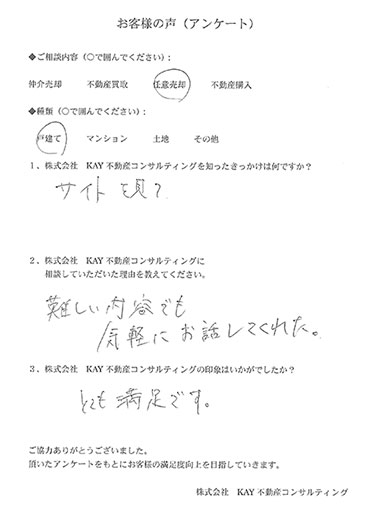 お客様の声（アンケート）
◆ご相談内容（○で囲んでください）：
仲介売却　不動産買取　任意売却　不動産購入
◆種類（○で囲んでください）：
戸建て　マンション　土地　その他
１、株式会社　KAY 不動産コンサルティングを知ったきっかけは何ですか？
サイトを見て
２、株式会社　KAY 不動産コンサルティングに
相談していただいた理由を教えてください。
難しい内容でも
気軽にお話してくれた。
３、株式会社　KAY 不動産コンサルティングの印象はいかがでしたか？
とても満足です。
ご協力ありがとうございました。
頂いたアンケートをもとにお客様の満足度向上を目指していきます。
株式会社　KAY 不動産コンサルティング